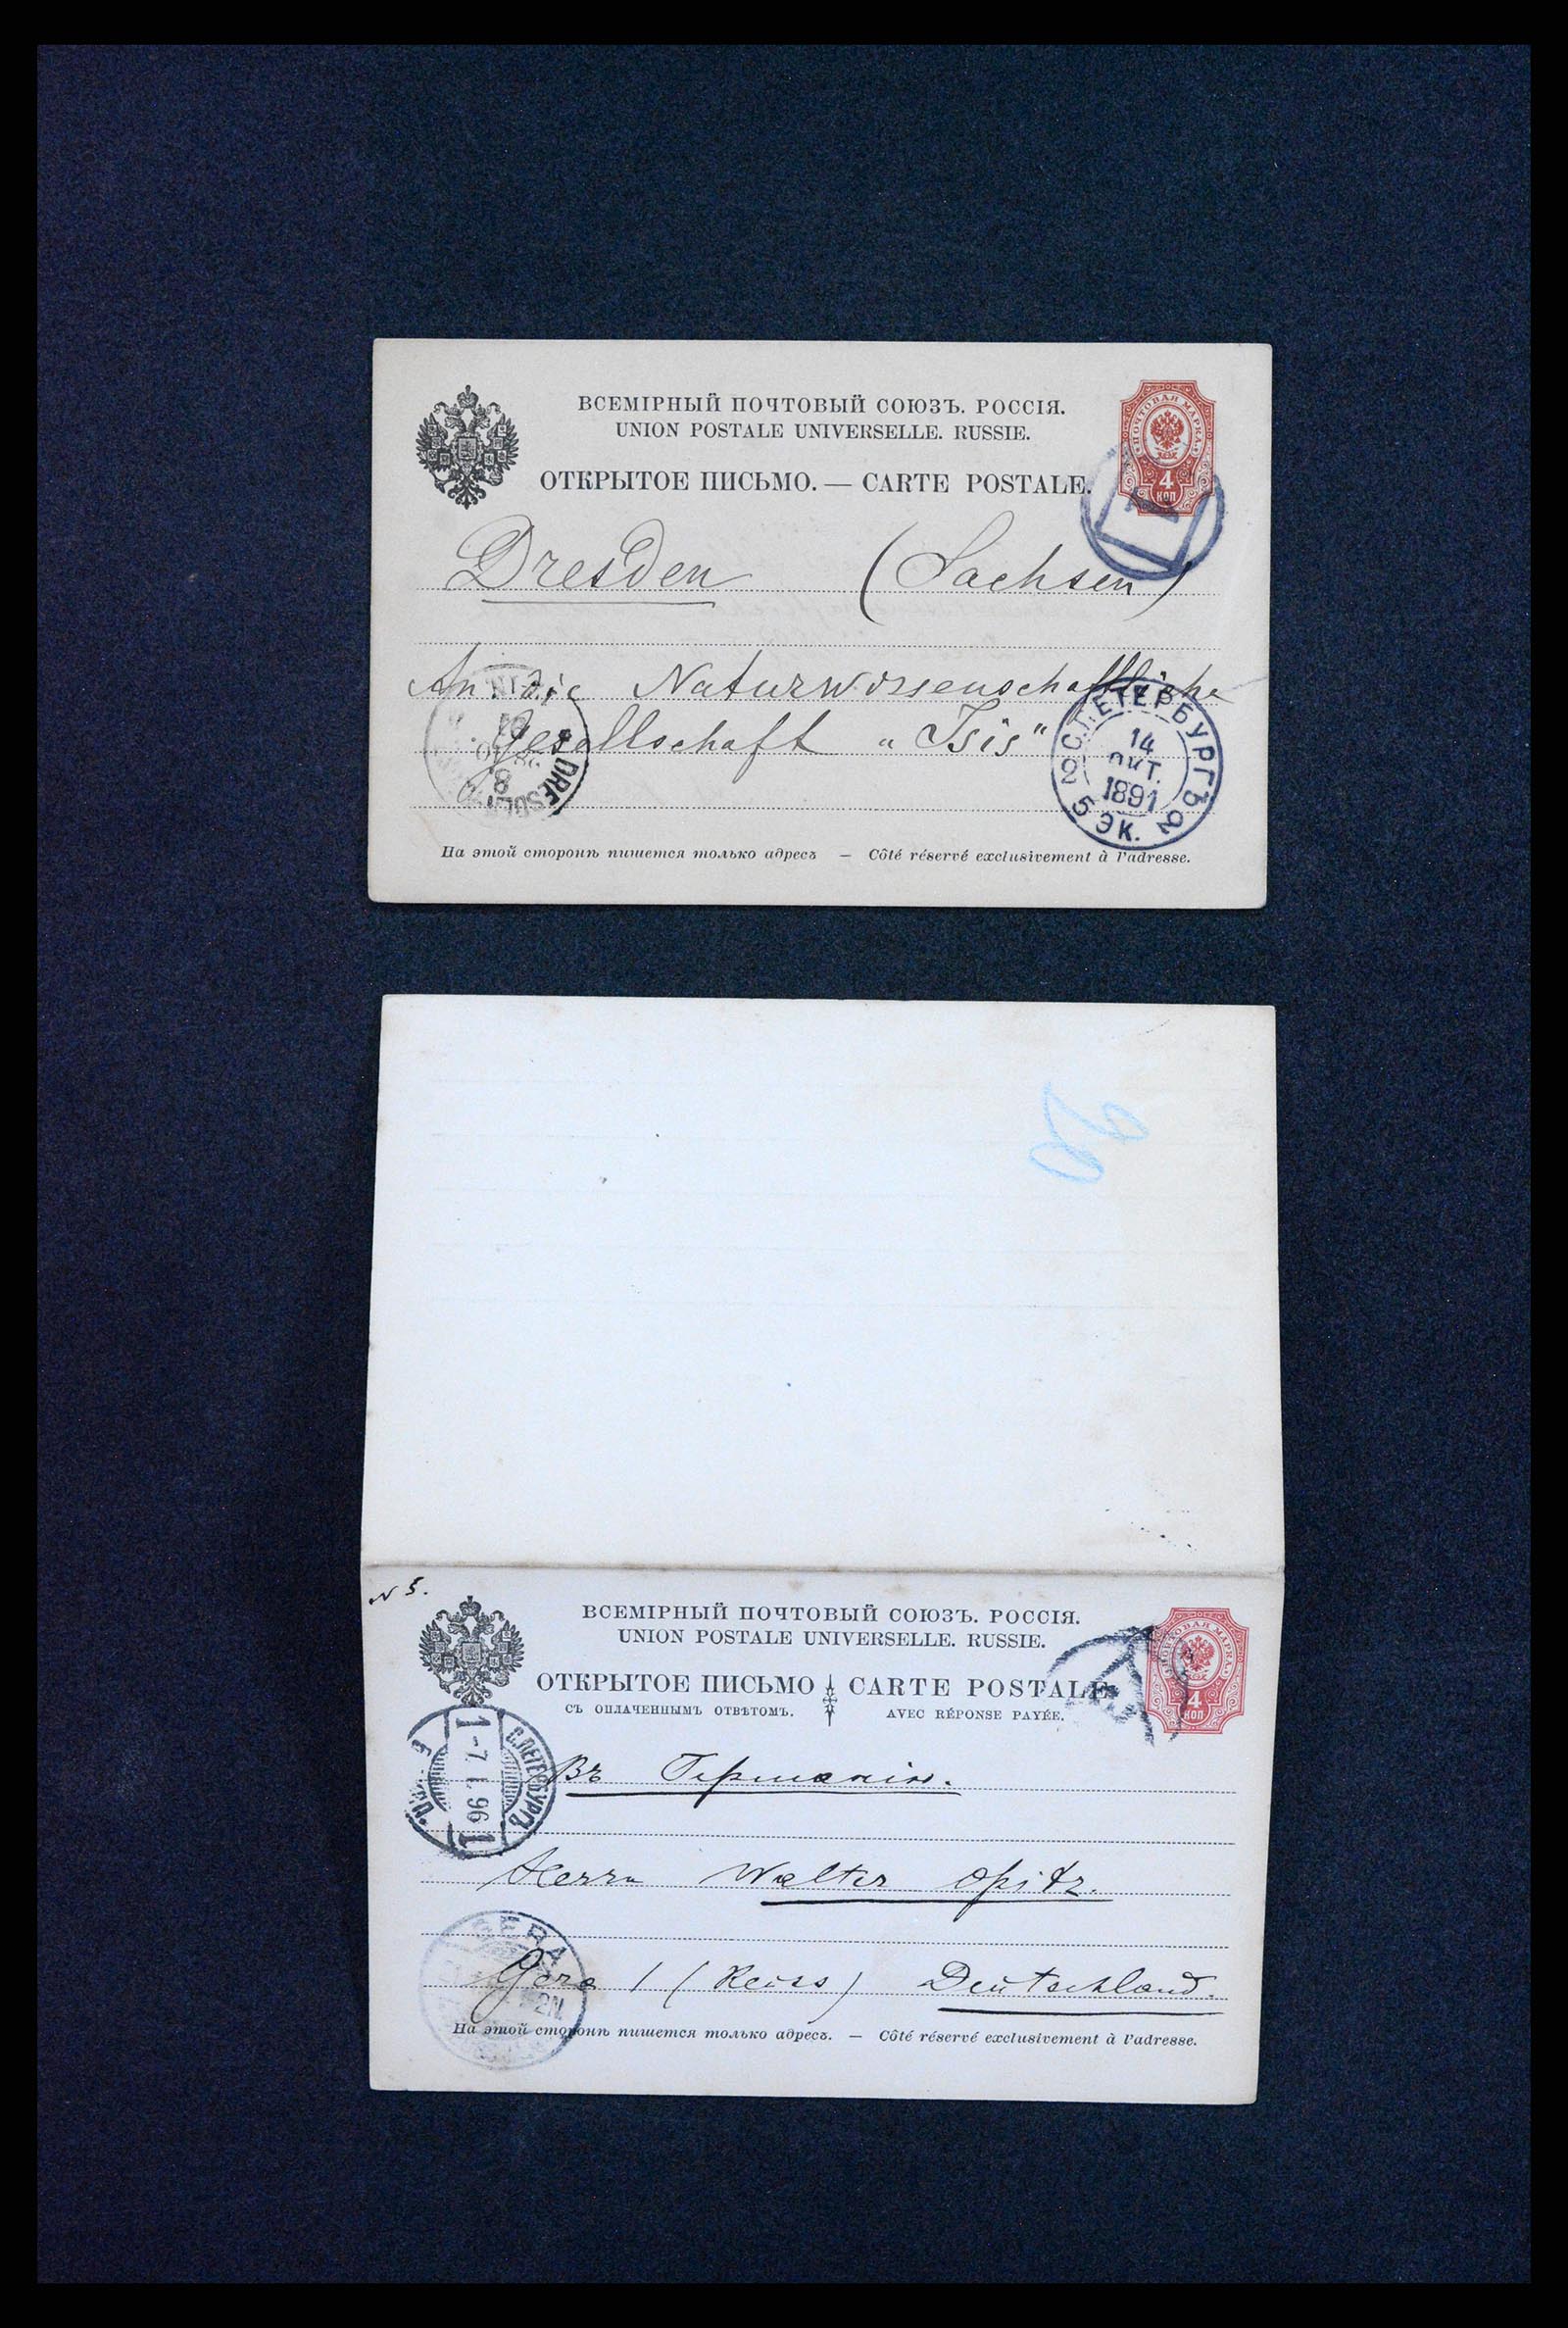 ВСЕМІРНЫЙ ПОЧТОВЫЙ СОЮЗЪ. РОССІЯ.
UNION POSTALE UNIVERSELLE. RUSSIE.
ОТКРЫТОЕ ПИСЬМО. — CARTE POSTALE.
ПОЧТОВАЯ МАРКА
4
КОП
1
Dresden (Sachsen)
An die Naturwissenschaftliche
Gesellschaft „Isis"
DRESDEN
С.ПЕТЕРБУРГЪ
14
ОКТ.
1891
2
5 ЭК. 2
На этой сторонѣ пишется только адресъ — Côté réservé exclusivement à l'adresse.
20
N 5.
ВСЕМІРНЫЙ ПОЧТОВЫЙ СОЮЗЪ. РОССІЯ.
UNION POSTALE UNIVERSELLE. RUSSIE.
ОТКРЫТОЕ ПИСЬМО CARTE POSTALE
СЪ ОПЛАЧЕННЫМЪ ОТВѢТОМЪ. AVEC RÉPONSE PAYÉE.
ПОЧТОВАЯ МАРКА
4
КОП
С.ПЕТЕРБУРГЪ
1-7 I 96
Въ Германію.
Herrn Walter Opitz.
GERA
Gera / (Reuss) Deutschland.
2N
На этой сторонѣ пишется только адресъ. — Côté réservé exclusivement à l'adresse.